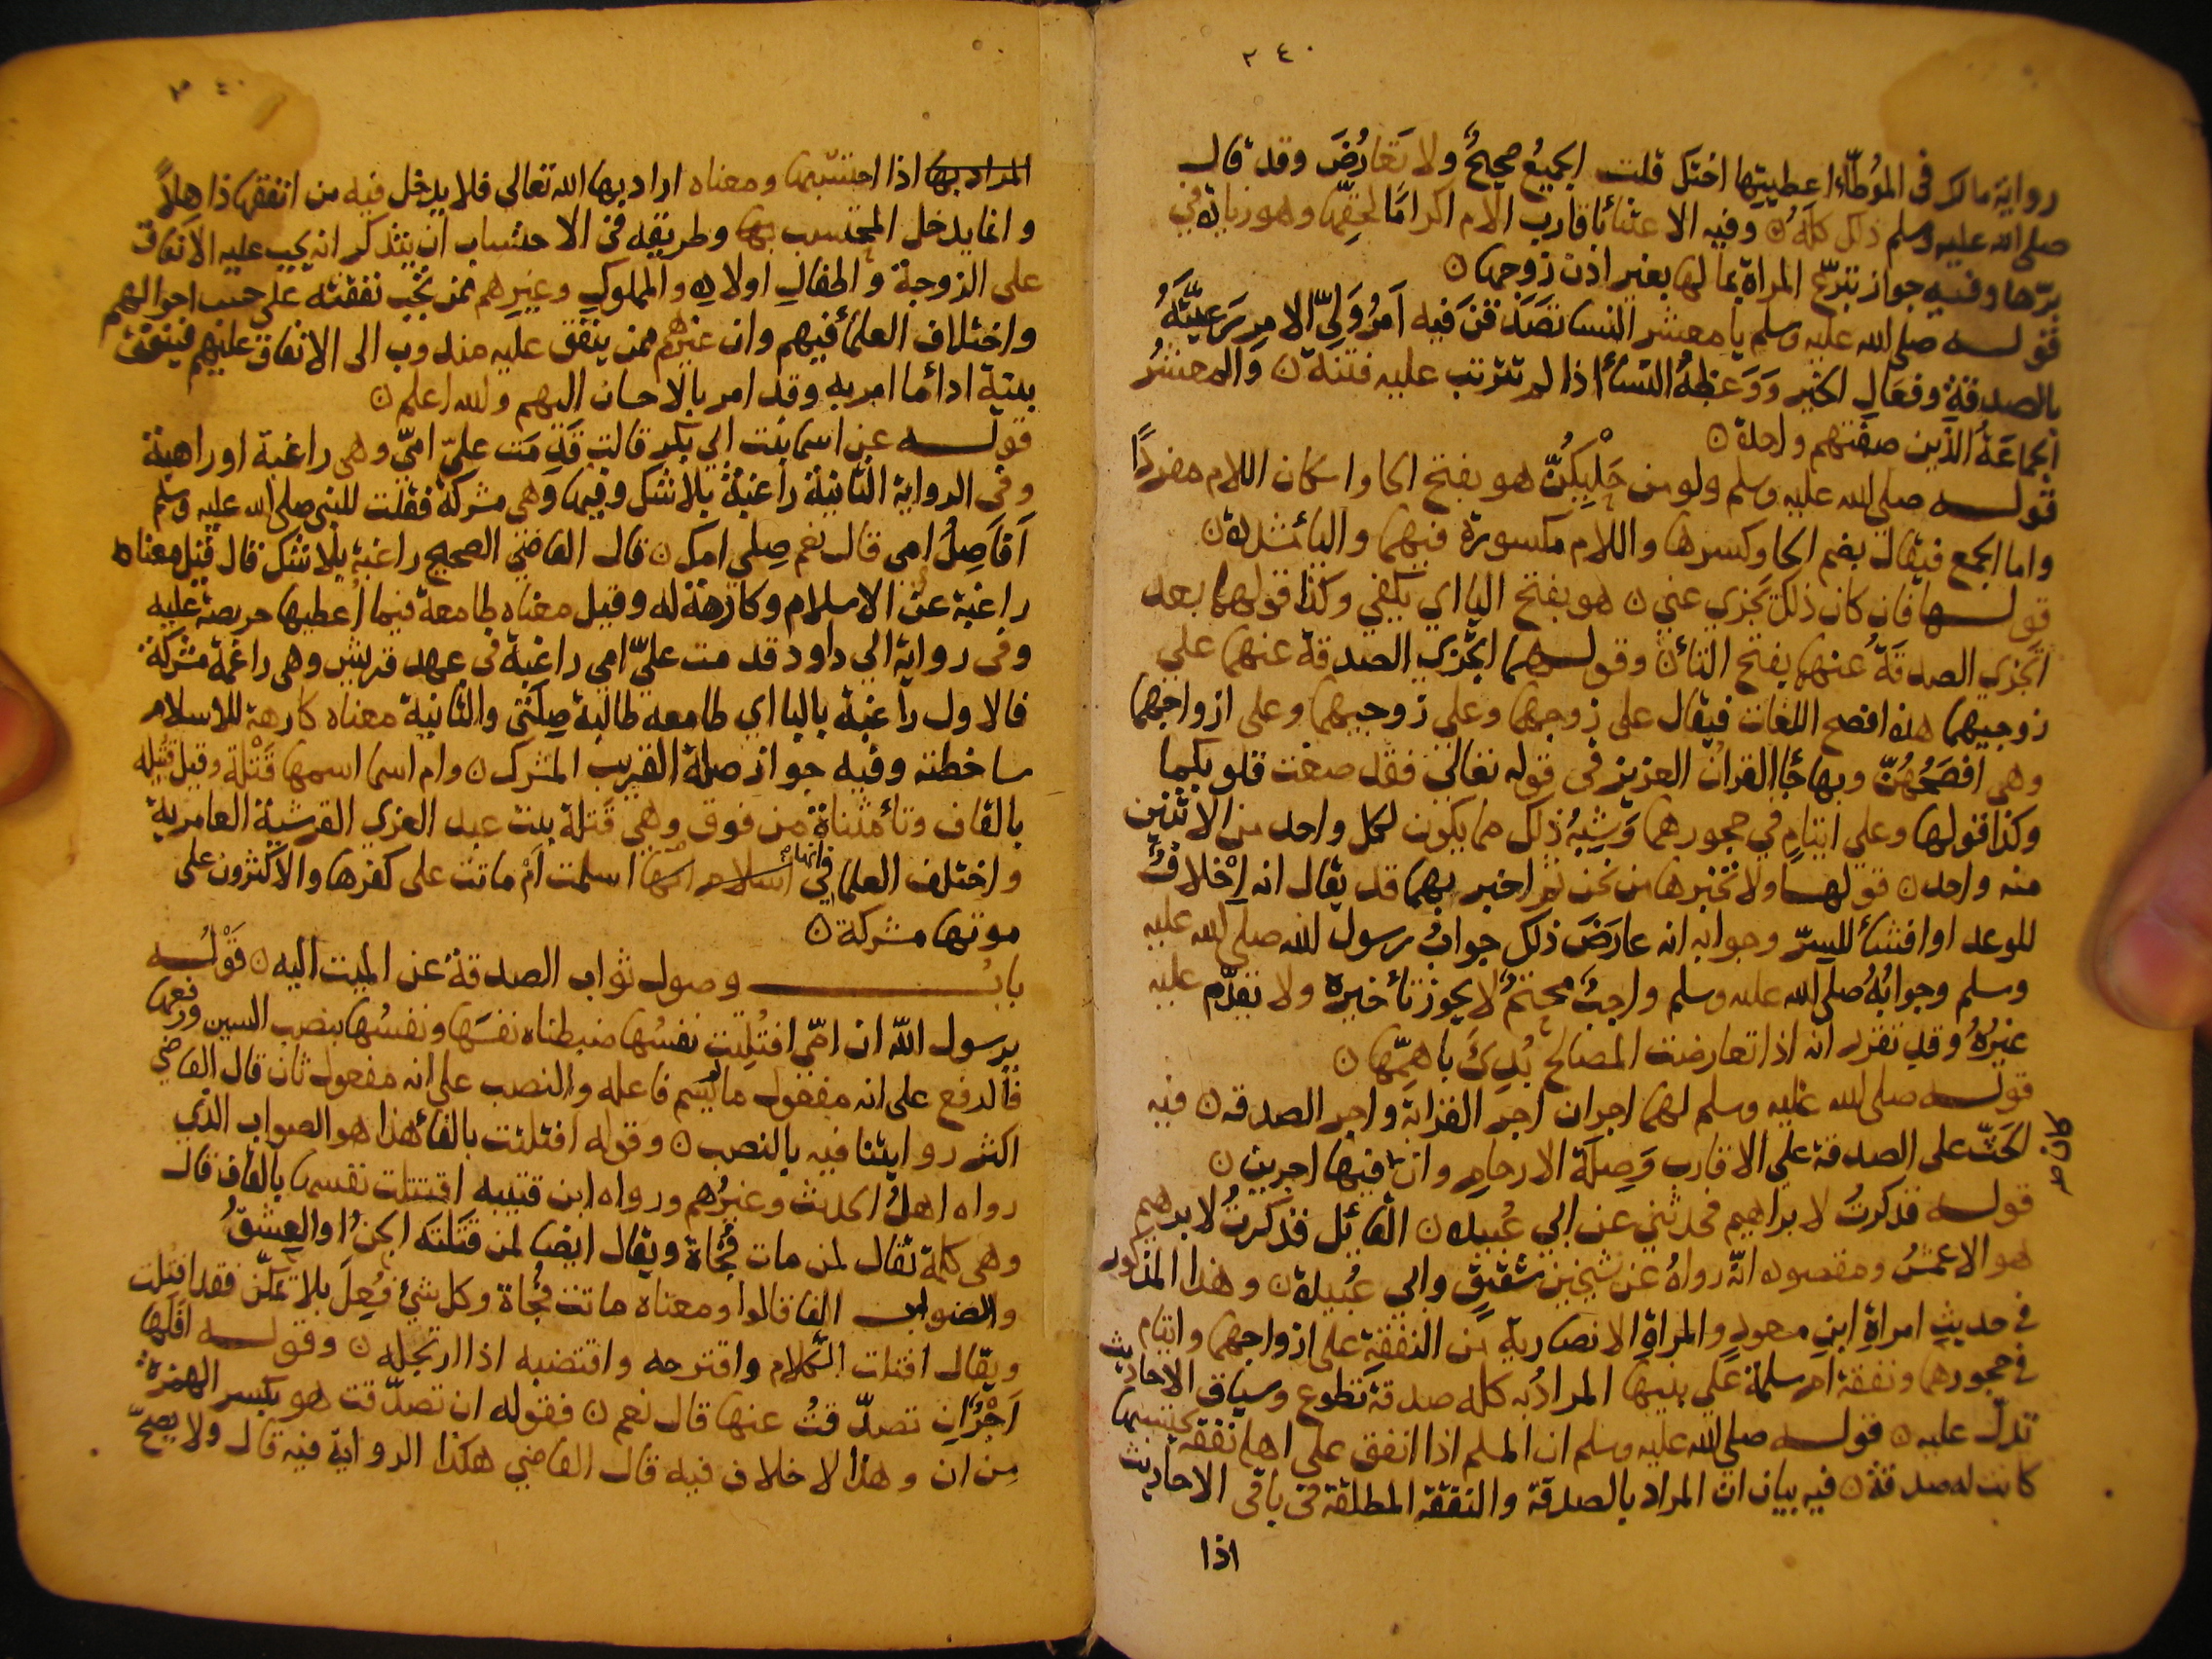 ٢٤٠
رواية مالك فى الموطّاء اعطيتِها اختَك قلت الجميعُ صحيحٌ ولا تَعَارُضَ وقد قال
صلى الله عليه وسلم ذلك كلَّهُ ۞ وفيه الاعتناءُ باقارب الام اكرامًا لحقّها وهو زيادة في
برّها وفيه جواز تبرّع المراة بمالها بغير اذن زوجها ۞
قوله صلى الله عليه وسلم يا معشر النسا تصَدَّقنَ فيه اَمرُ وَلِيّ الامرِ رَعيّتَهُ
بالصدقةِ وفعَالِ الخير وَوَعظهُ النسأَ اذا لم تترتب عليه فتنة ۞ والمعشرُ
الجماعَةُ الذين صفتهم واحدة ۞
قوله صلى الله عليه وسلم ولو من حَلْيِكُنَّ هو بفتح الحا واسكان اللام مفردًا
واما الجمع فيقال بضم الحا وكسرها واللام مكسورة فيهما واليأ مشددة ۞
قولها فان كان ذلك يَجزي عني ۞ هو بفتح اليا اي يكفي وكذا قولهما بعد
اتَجزي الصدقةُ عنهما بفتح التأ ۞ وقولهما اتَجزي الصدقة عنهما علي
زوجيهما هذه افصح اللغات فيقال على زوجهما وعلى زوجيهما وعلى ازواجهما
وهى افصَحُهُنّ وبها جأ القرانُ العزيز في قوله تعالى فقد صغت قلوبكما
وكذا قولها وعلى ايتامٍ في حجورهما وَشِبهُ ذلك مما يكون لكل واحد من الاثنين
منه واحد ۞ قولهما ولا تخبرها من نحن ثم اخبر بهما قد يقال انه اِخْلافٌ
للوعد او افشأ للسرّ وجوابه انه عارَضَ ذلك جوابُ رسول الله صلى الله عليه
وسلم وجوابُهُ صلى الله عليه وسلم واجبٌ محتّمٌ لا يجوز تأخيره ولا تقدّم عليه
غيرُهُ وقد تقرر انه اذا تعارضت المصالح بُدِئَ باهمّها ۞
قوله صلى الله عليه وسلم لهما اجران اجر القرابة واجر الصدقه ۞ فيه
الحَثّ على الصدقة على الاقارب وَصِلَة الارحامِ وانّ فيها اجرين ۞
قوله فذكرتُ لابراهيم فحدثني عن ابي عُبيدة ۞ القائل فذكرتُ لابرهيم
هو الاعمشُ ومقصوده انّه رواهُ عن شيخين شقيقٍ وابي عُبيدة ۞ وهذا المذكور
في حديثِ امراةِ ابنِ مسعودٍ والمراةِ الانصارية من النفقةِ على ازواجهما وايتام
في حجورهما ونفقة ام سلمةَ على بنيها المرادُ به كله صدقة تطوع وسياق الاحاديث
تدلّ عليه ۞ قوله صلى الله عليه وسلم ان المسلم اذا انفق على اهله نفقة يحتسبها
كانت له صدقة ۞ فيه بيان ان المراد بالصدقة والنفقة المطلقة فى باقي الاحاديث
اذا
٢٤٠
المراد بها اذا احتسبها ومعناه اراد بها الله تعالى فلا يدخل فيه من انفقها ذاهلاً
وانما يدخل المحتسب بها وطريقه في الاحتساب ان يتذكر انه يجب عليه الانفاق
على الزوجة واطفالِ اولاده والمملوكِ وغيرِهم ممن تجب نفقته على حسب احوالهم
واختلاف العلمأ فيهم وان غيرَهم ممن ينفق عليه مندوب الى الانفاق عليهم فينفق
بنيّة ادأ ما امر به وقد امر بالاحسان اليهم والله اعلم ۞
قوله عن اسما بنت ابي بكر قالت قَدِمَت عليّ امّي وهى راغبة او راهبة
وفي الرواية الثانية راغبةٌ بلا شك وفيها وهى مشركة فقلت للنبى صلى الله عليه وسلم
اَفَاَصِلُ امي قال نعم صِلى امك ۞ قال القاضي الصحيح راغبة بلا شك قال قيل معناه
راغبة عن الاسلام وكارهة له وقيل معناه طامعة فيما اُعطيها حريصة عليه
وفى رواية ابي داود قدمت عليّ امي راغبة في عهد قريش وهى راغمة مشركة
فالاول راغبة بالبا اي طامعه طالبة صِلَتى والثانية معناه كارهة للاسلام
ساخطته وفيه جواز صلة القريب المشرك ۞ وام اسما اسمها قَتْلة وقيل قُتيلة
بالقاف وتأ مثناة من فوق وهي قَتلة بنت عبد العزى القرشية العامرية
واختلف العلما في انها اسلمت اَمْ ماتت على كفرها والاكثرون على
موتها مشركة ۞
بابُ وصول ثواب الصدقة عن الميت اليه ۞ قَوْلُه
يرسول الله ان امّي افتُلِتت نفسُها ضبطناه نفسَها ونفسُها بنصب السين ورفعها
فالرفع على انه مفعول ما لم يُسَم فاعله والنصب على انه مفعول ثان قال القاضي
اكثر روايتنا فيه بالنصب ۞ وقوله افتلتت بالفأ هذا هو الصواب الذي
رواه اهلُ الحديث وغيرُهم ورواه ابن قتيبه اقتتلت نفسها بالقاف قال
وهى كلمة تقال لمن مات فُجْأة ويقال ايضا لمن قَتَلَته الجنُ او العِشقُ
والصوابُ الفا قالوا ومعناه ماتت فُجْأة وكل شئ فُعِلَ بلا تمكّن فقد افتلت
ويقال افتلت الكلام واقترحه واقتضبه اذا ارتجله ۞ وقوله افلها
اَجْرٌ اِن تصدّقتُ عنها قال نعم ۞ فقوله ان تصدّقت هو بكسر الهمزة
من ان وهذا لا خلاف فيه قال القاضي هكذا الرواية فيه قال ولا يصحّ